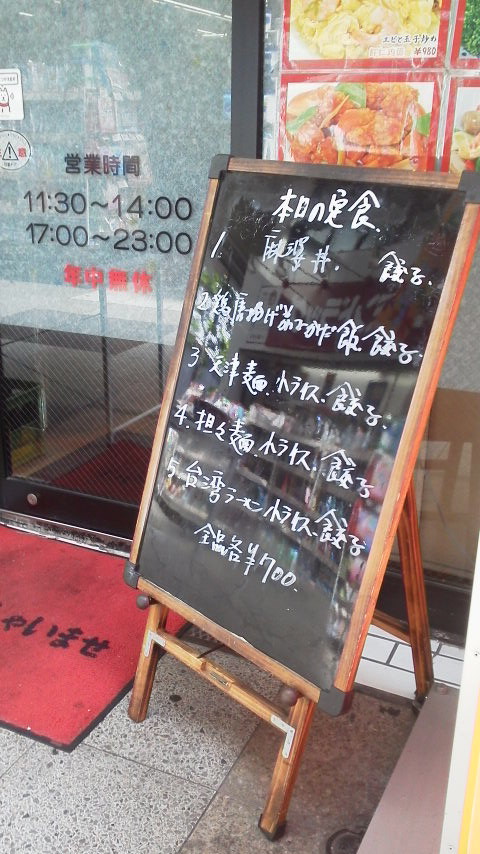 エビと玉子炒め
¥980
営業時間
11:30～14:00
17:00～23:00
年中無休
本日の定食
1. 麻婆丼. 餃子.
2. 鶏唐揚げあんかけ飯.餃子.
3 天津麺.小ライス.餃子.
4. 担々麺.小ライス.餃子
5. 台湾ラーメン小ライス.餃子
全品各¥700.
ゃいませ